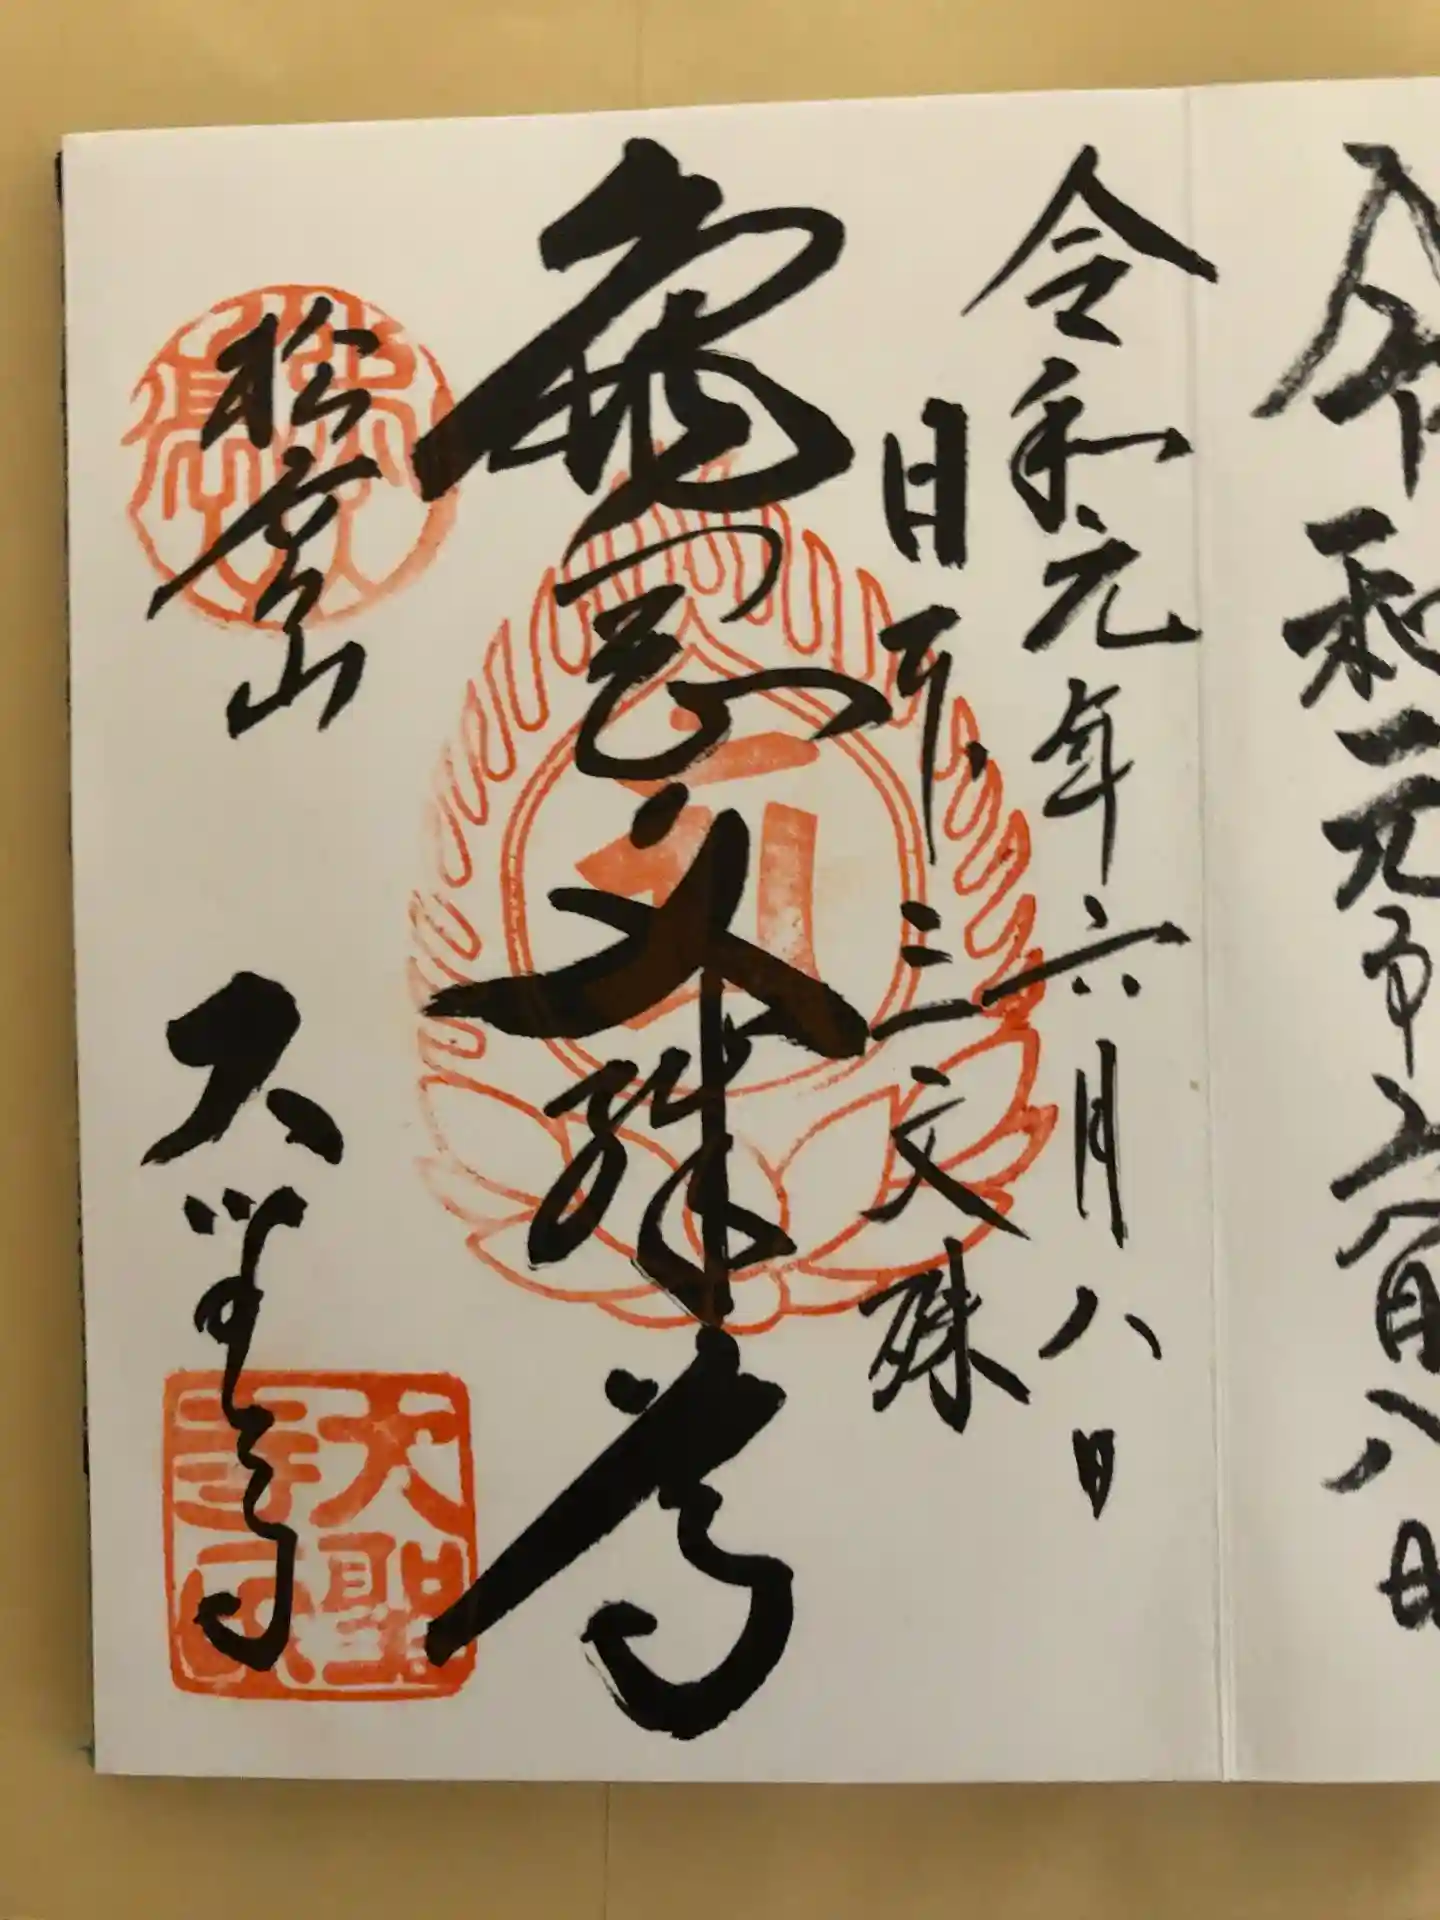 令和元年六月八日
令和元年六月八日
日本三文殊
亀岡文殊尊
松高山
大聖寺
大聖寺印